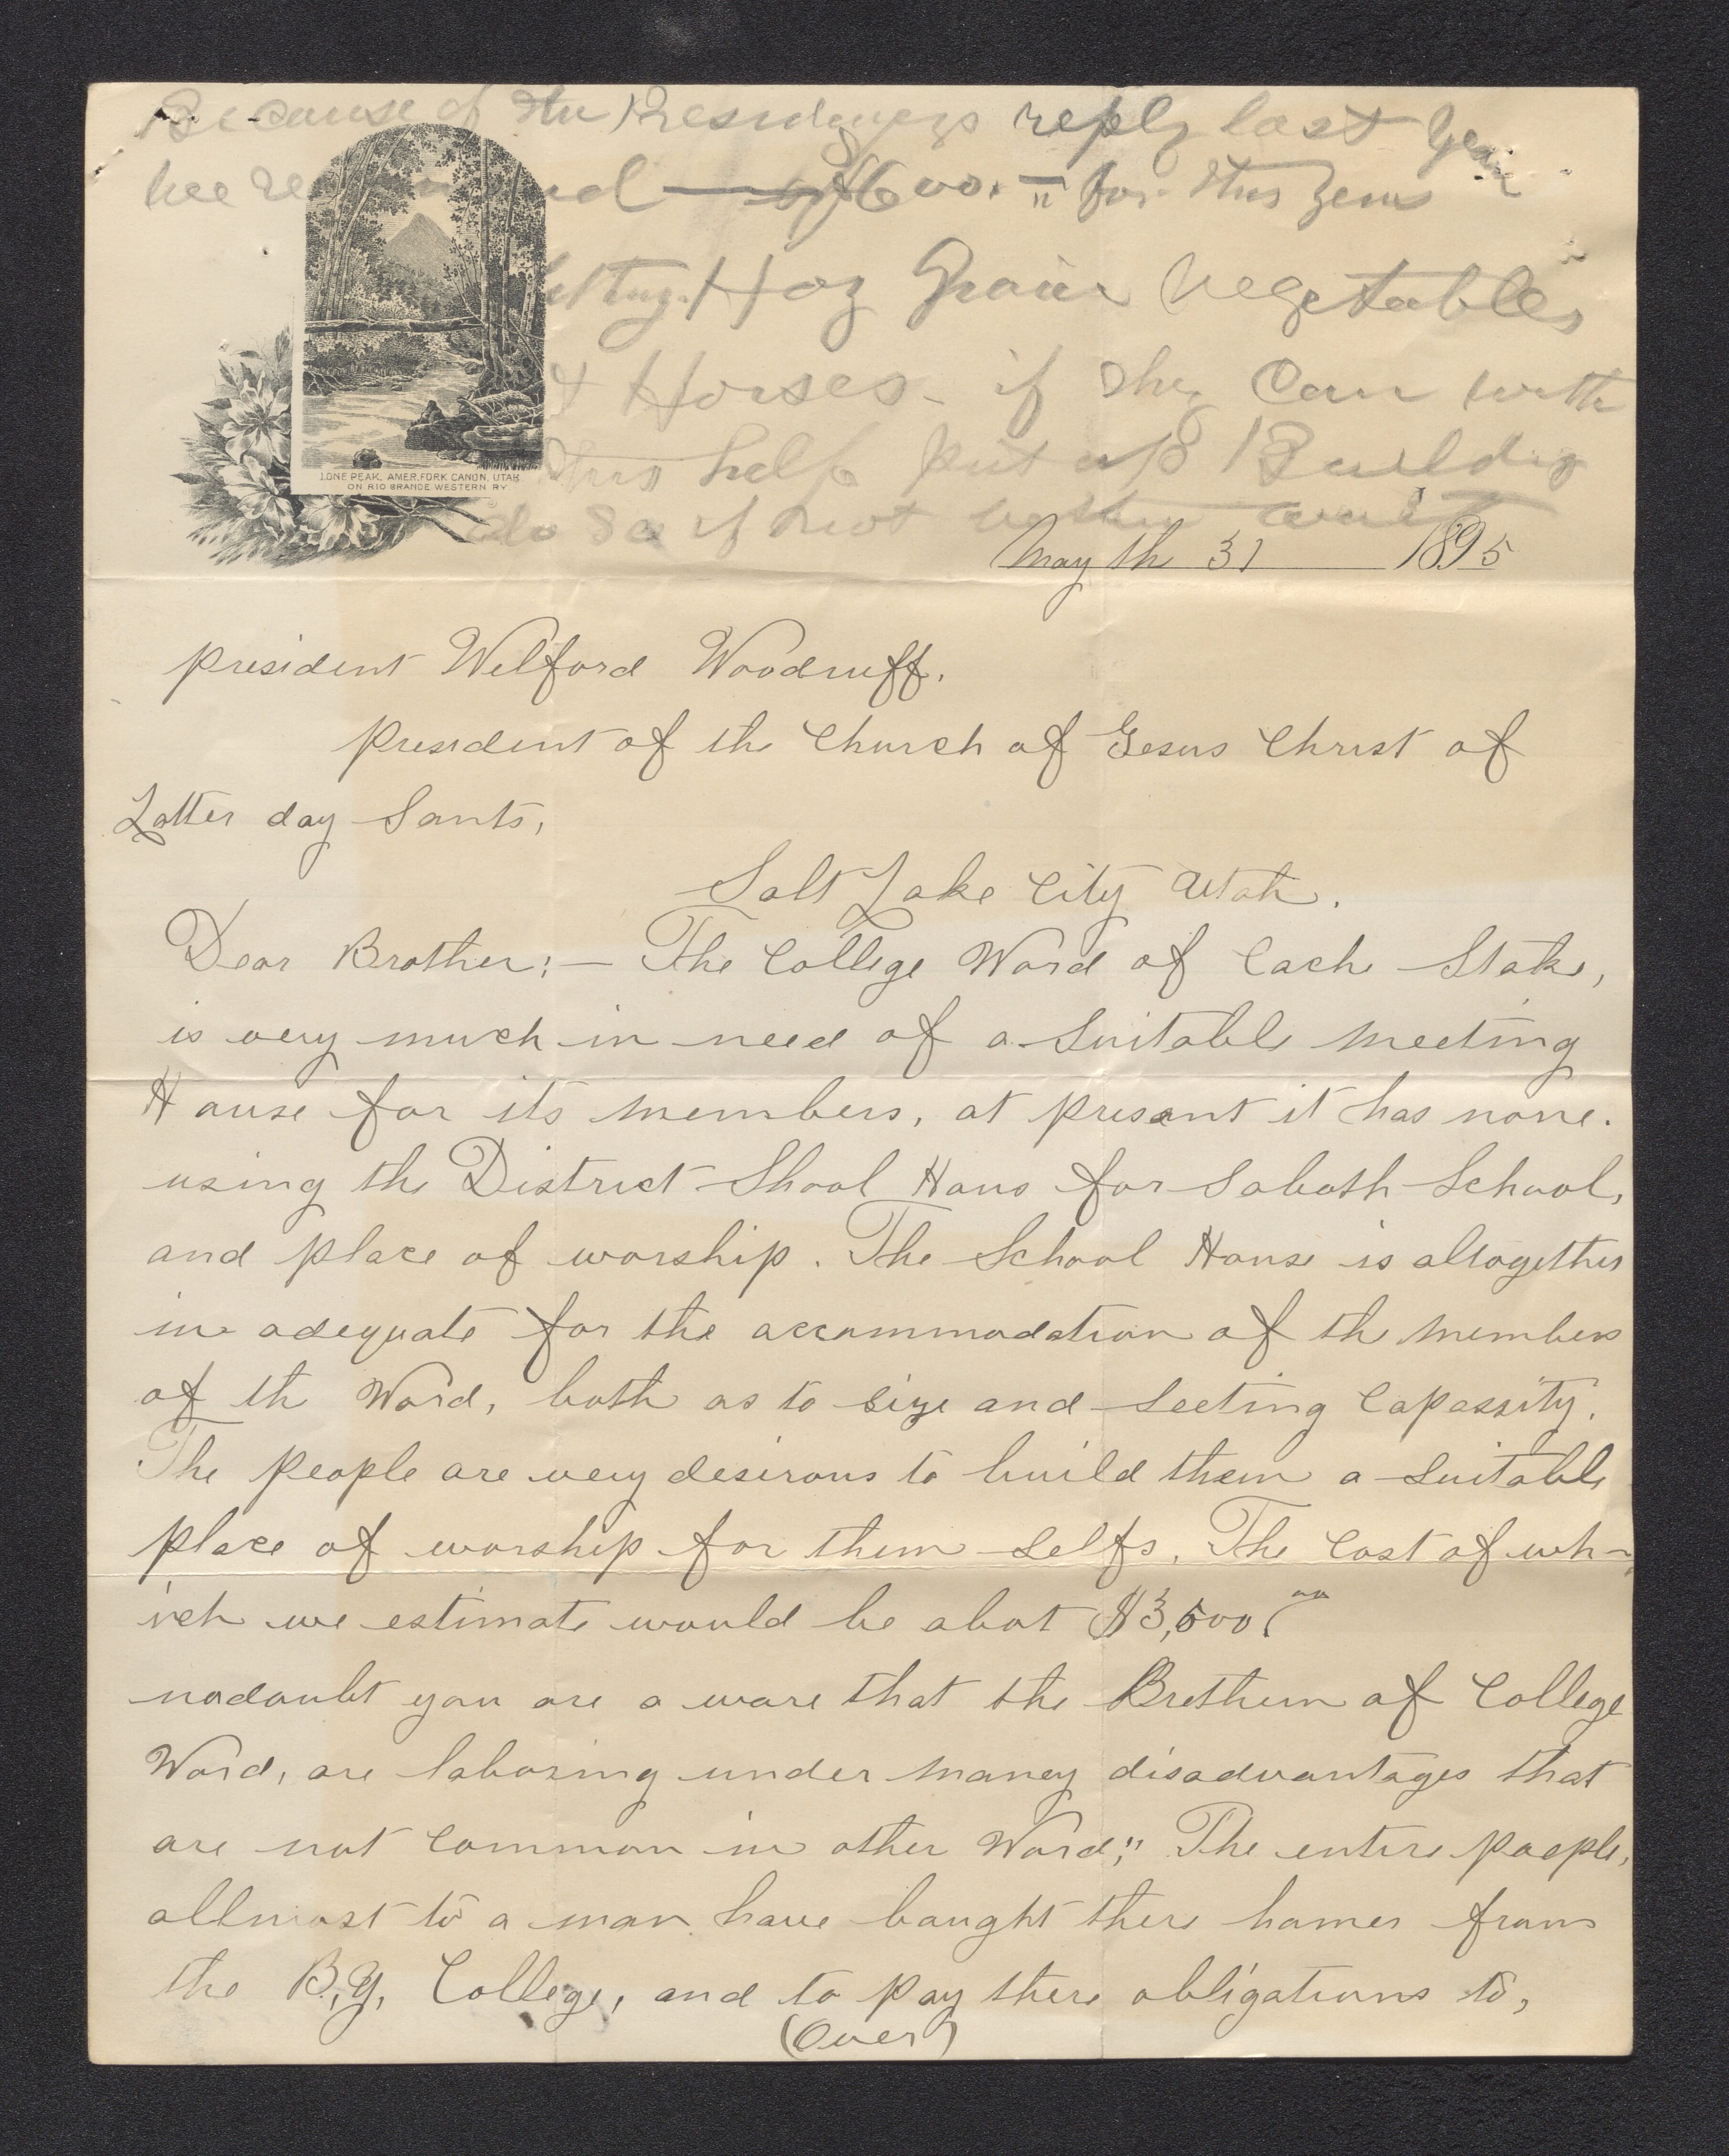 Because of the Presidencys reply last year
we re nd $600.= for this year
Hay Grain Vegetables
& Horses - if they can with
this help put up Building
do so if not better wait
LONE PEAK, AMER. FORK CANON, UTAH
ON RIO GRANDE WESTERN RY
May th 31 1895
president Wilford Woodruff.
President of th Church of Jesus Christ of
Latter day Sants,
Salt Lake City Utah.
Dear Brother:— The College Ward of Cach Stake,
is very much in need of a suitable meeting
House for its members, at presant it has none.
using the District Shool Hous for Saboth School,
and place of worship. The School House is altogether
in adequate for the accommodation of th members
of th Ward, both as to size and seeting Capassity.
The people are very desirous to build them a suitable
place of worship for them selfs. The Cost of wh-
ich we estimate would be abot $3,500.00
nodoubt you are a ware that the Brethern of College
Ward, are laboring under maney disadvantages that
are not Common in other Ward," The entire people,
allmost to a man have baught there homes from
the B.Y. College, and to pay there obligations to,
(Over)